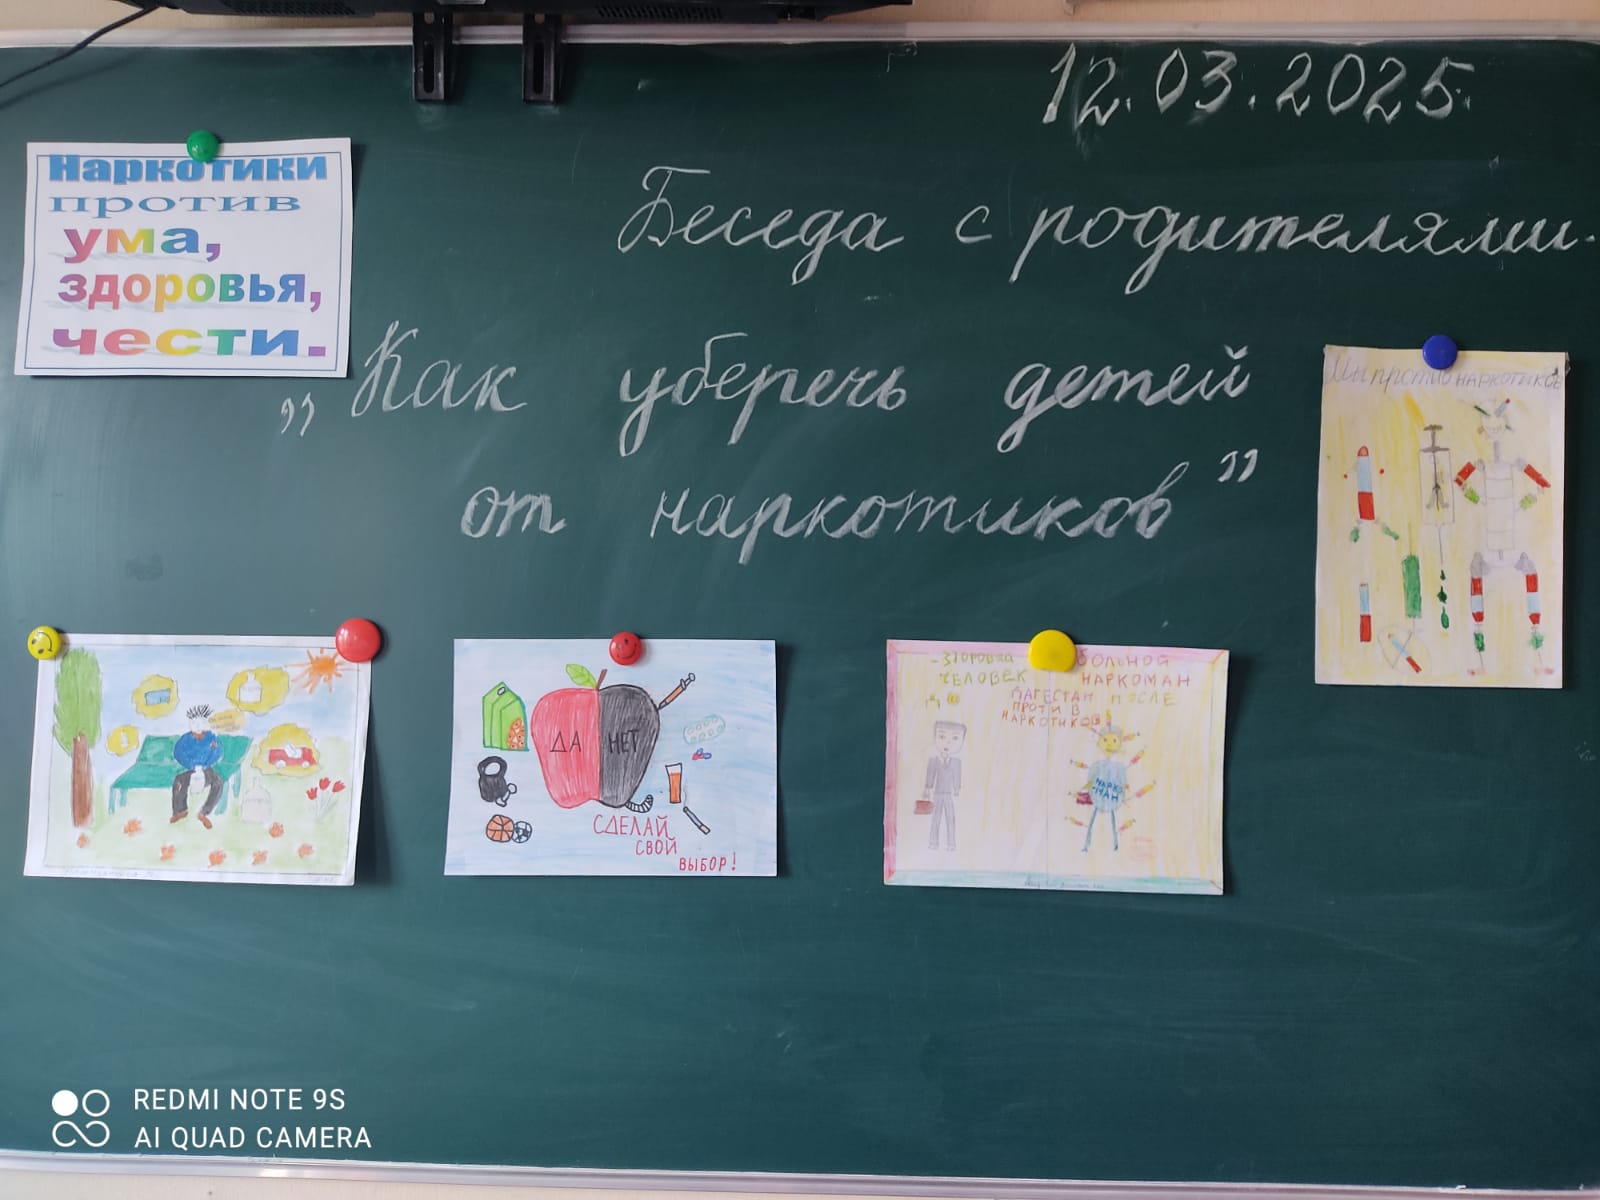 12.03.2025.
Беседа с родителями.
„Как уберечь детей
от наркотиков”
Наркотики
против
ума,
здоровья,
чести.
Мы против наркотиков
ДА НЕТ
СДЕЛАЙ
СВОЙ
ВЫБОР!
-ЗДОРОВЫЙ
ЧЕЛОВЕК
БОЛЬНОЙ
НАРКОМАН
ДАГЕСТАН
ПРОТИВ
НАРКОТИКОВ
ПОСЛЕ
НАРКО
-МАН
REDMI NOTE 9S
AI QUAD CAMERA